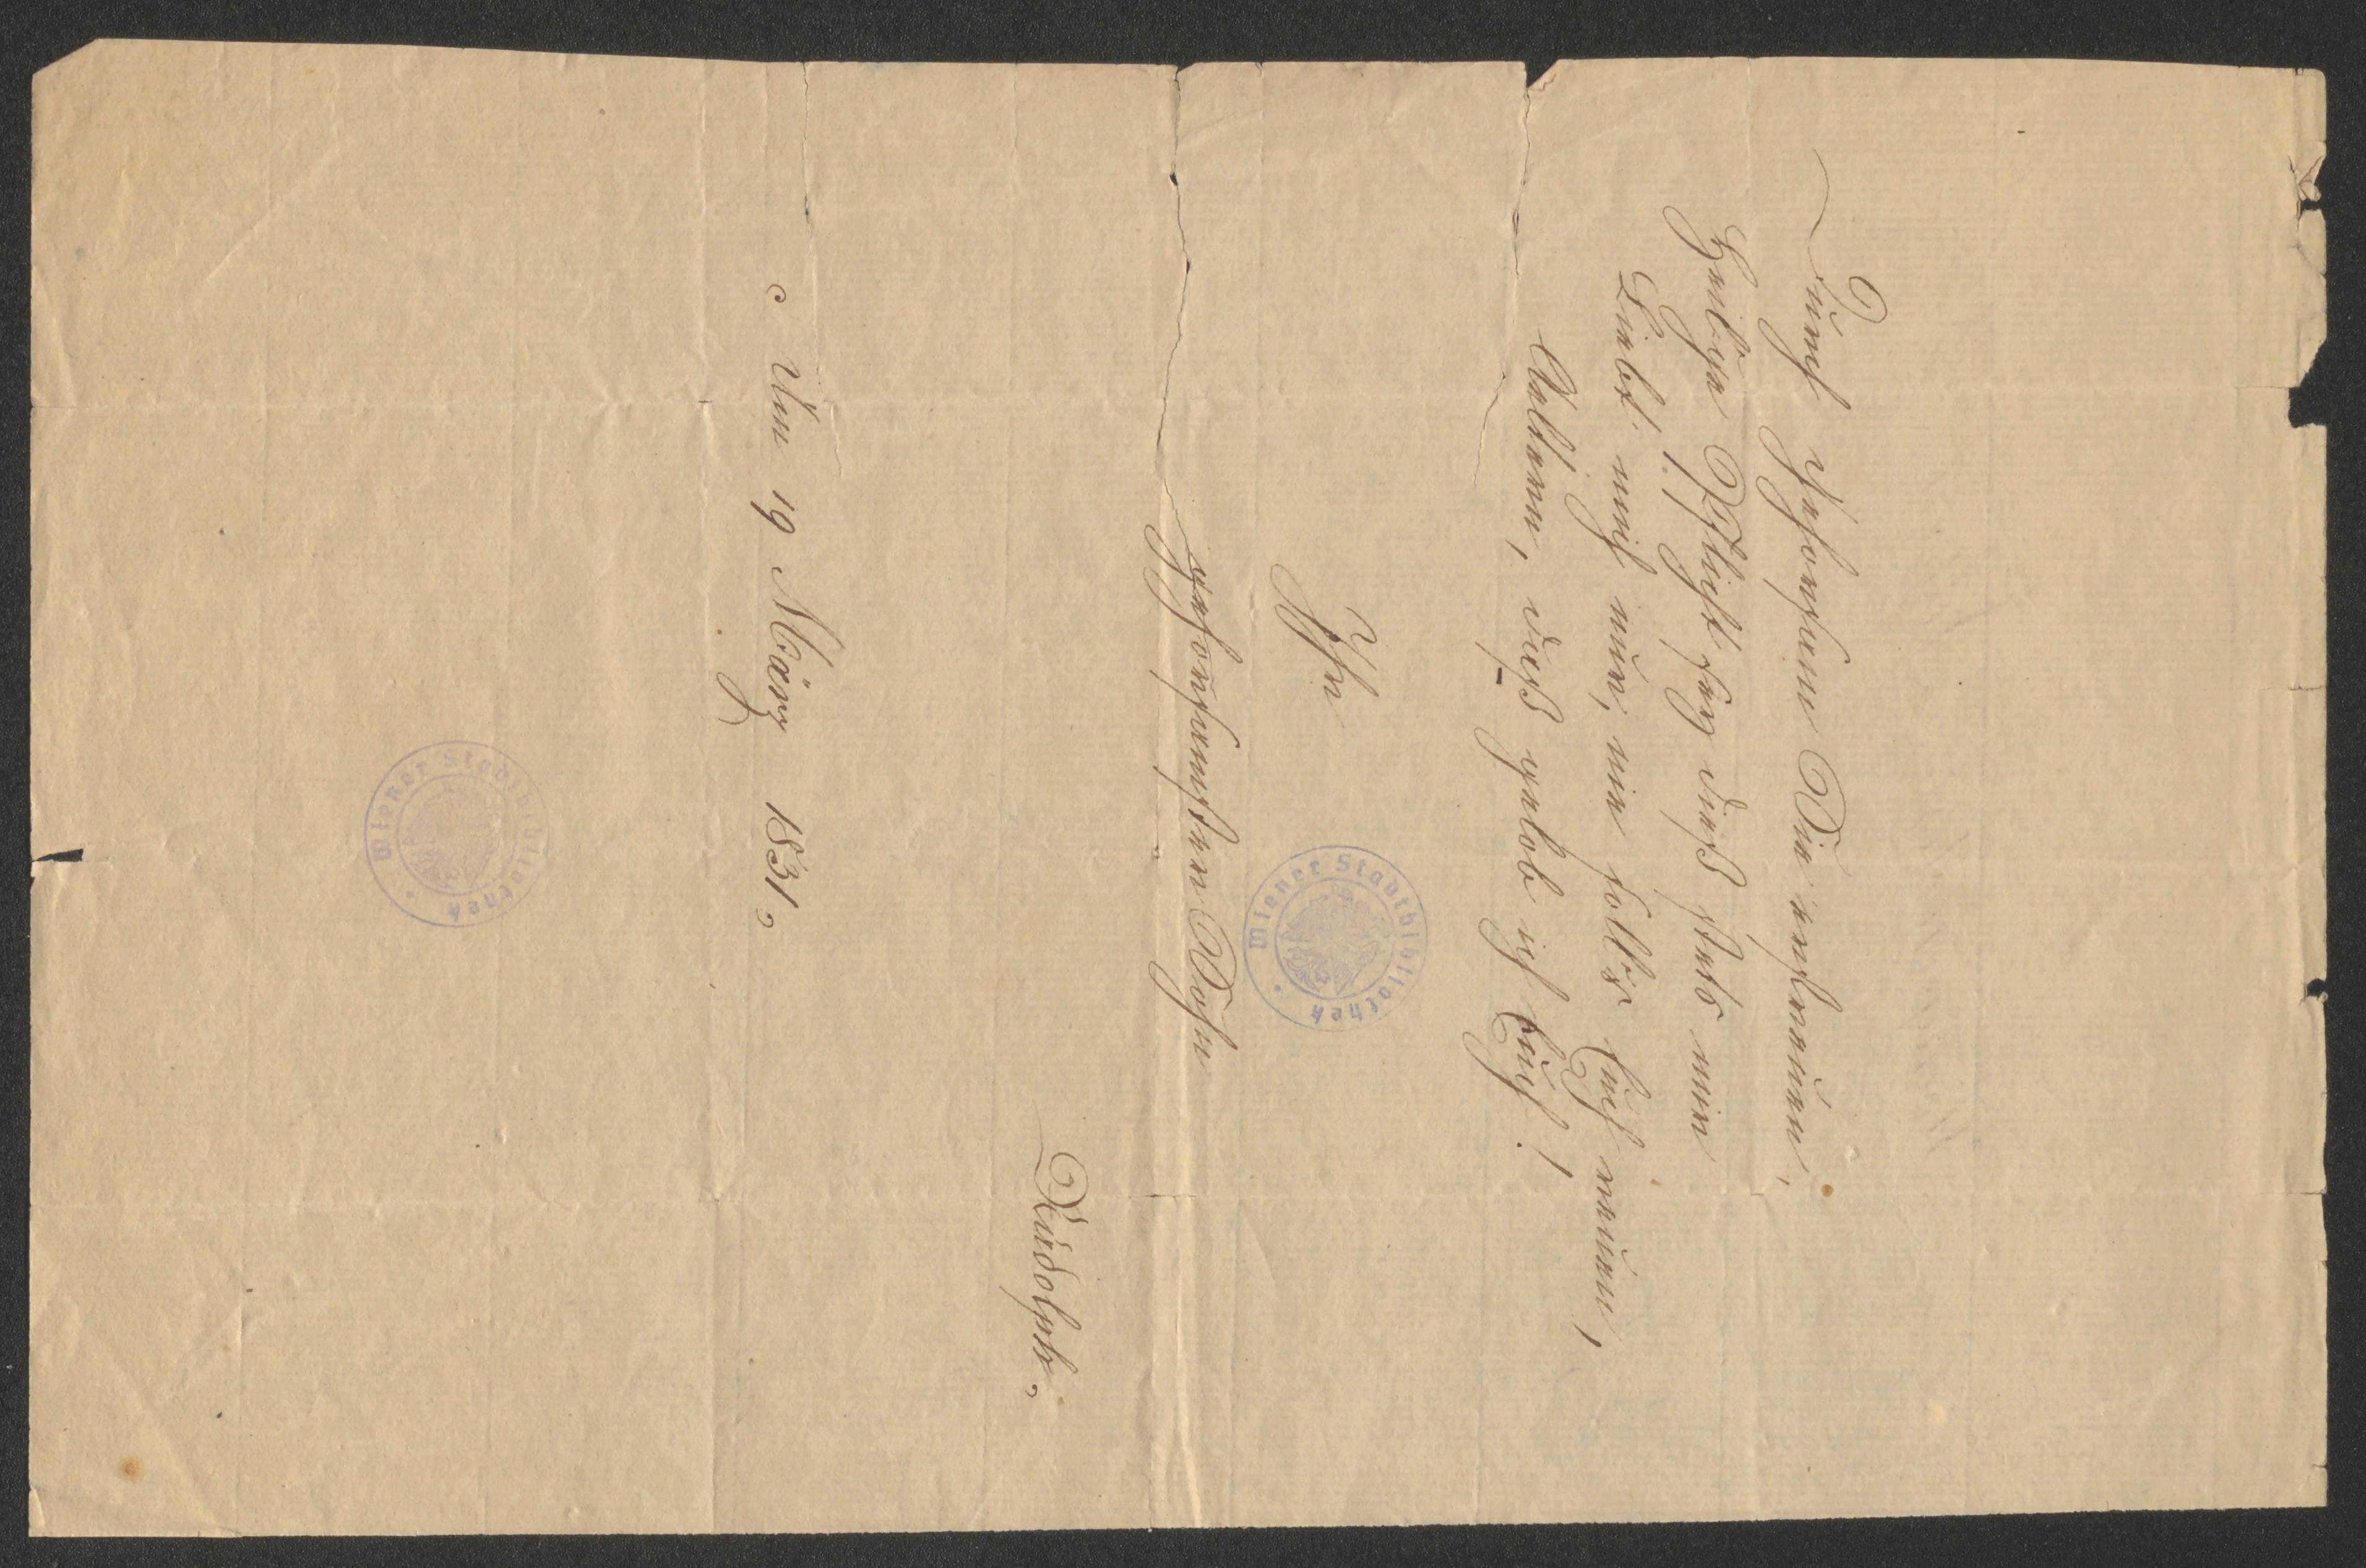 Durch gehorsam Die erfreuen,
Heil'ge Pflicht sey dieß stets mir
Liebt mich nur, nie soll's Euch reuen,
Aeltern, dieß gelob ich Euch!
Ihr
gehorsamster Sohn
Rudolph.
Am 19 März 1831.
Wiener Stadtbibliothek
Wiener Stadtbibliothek